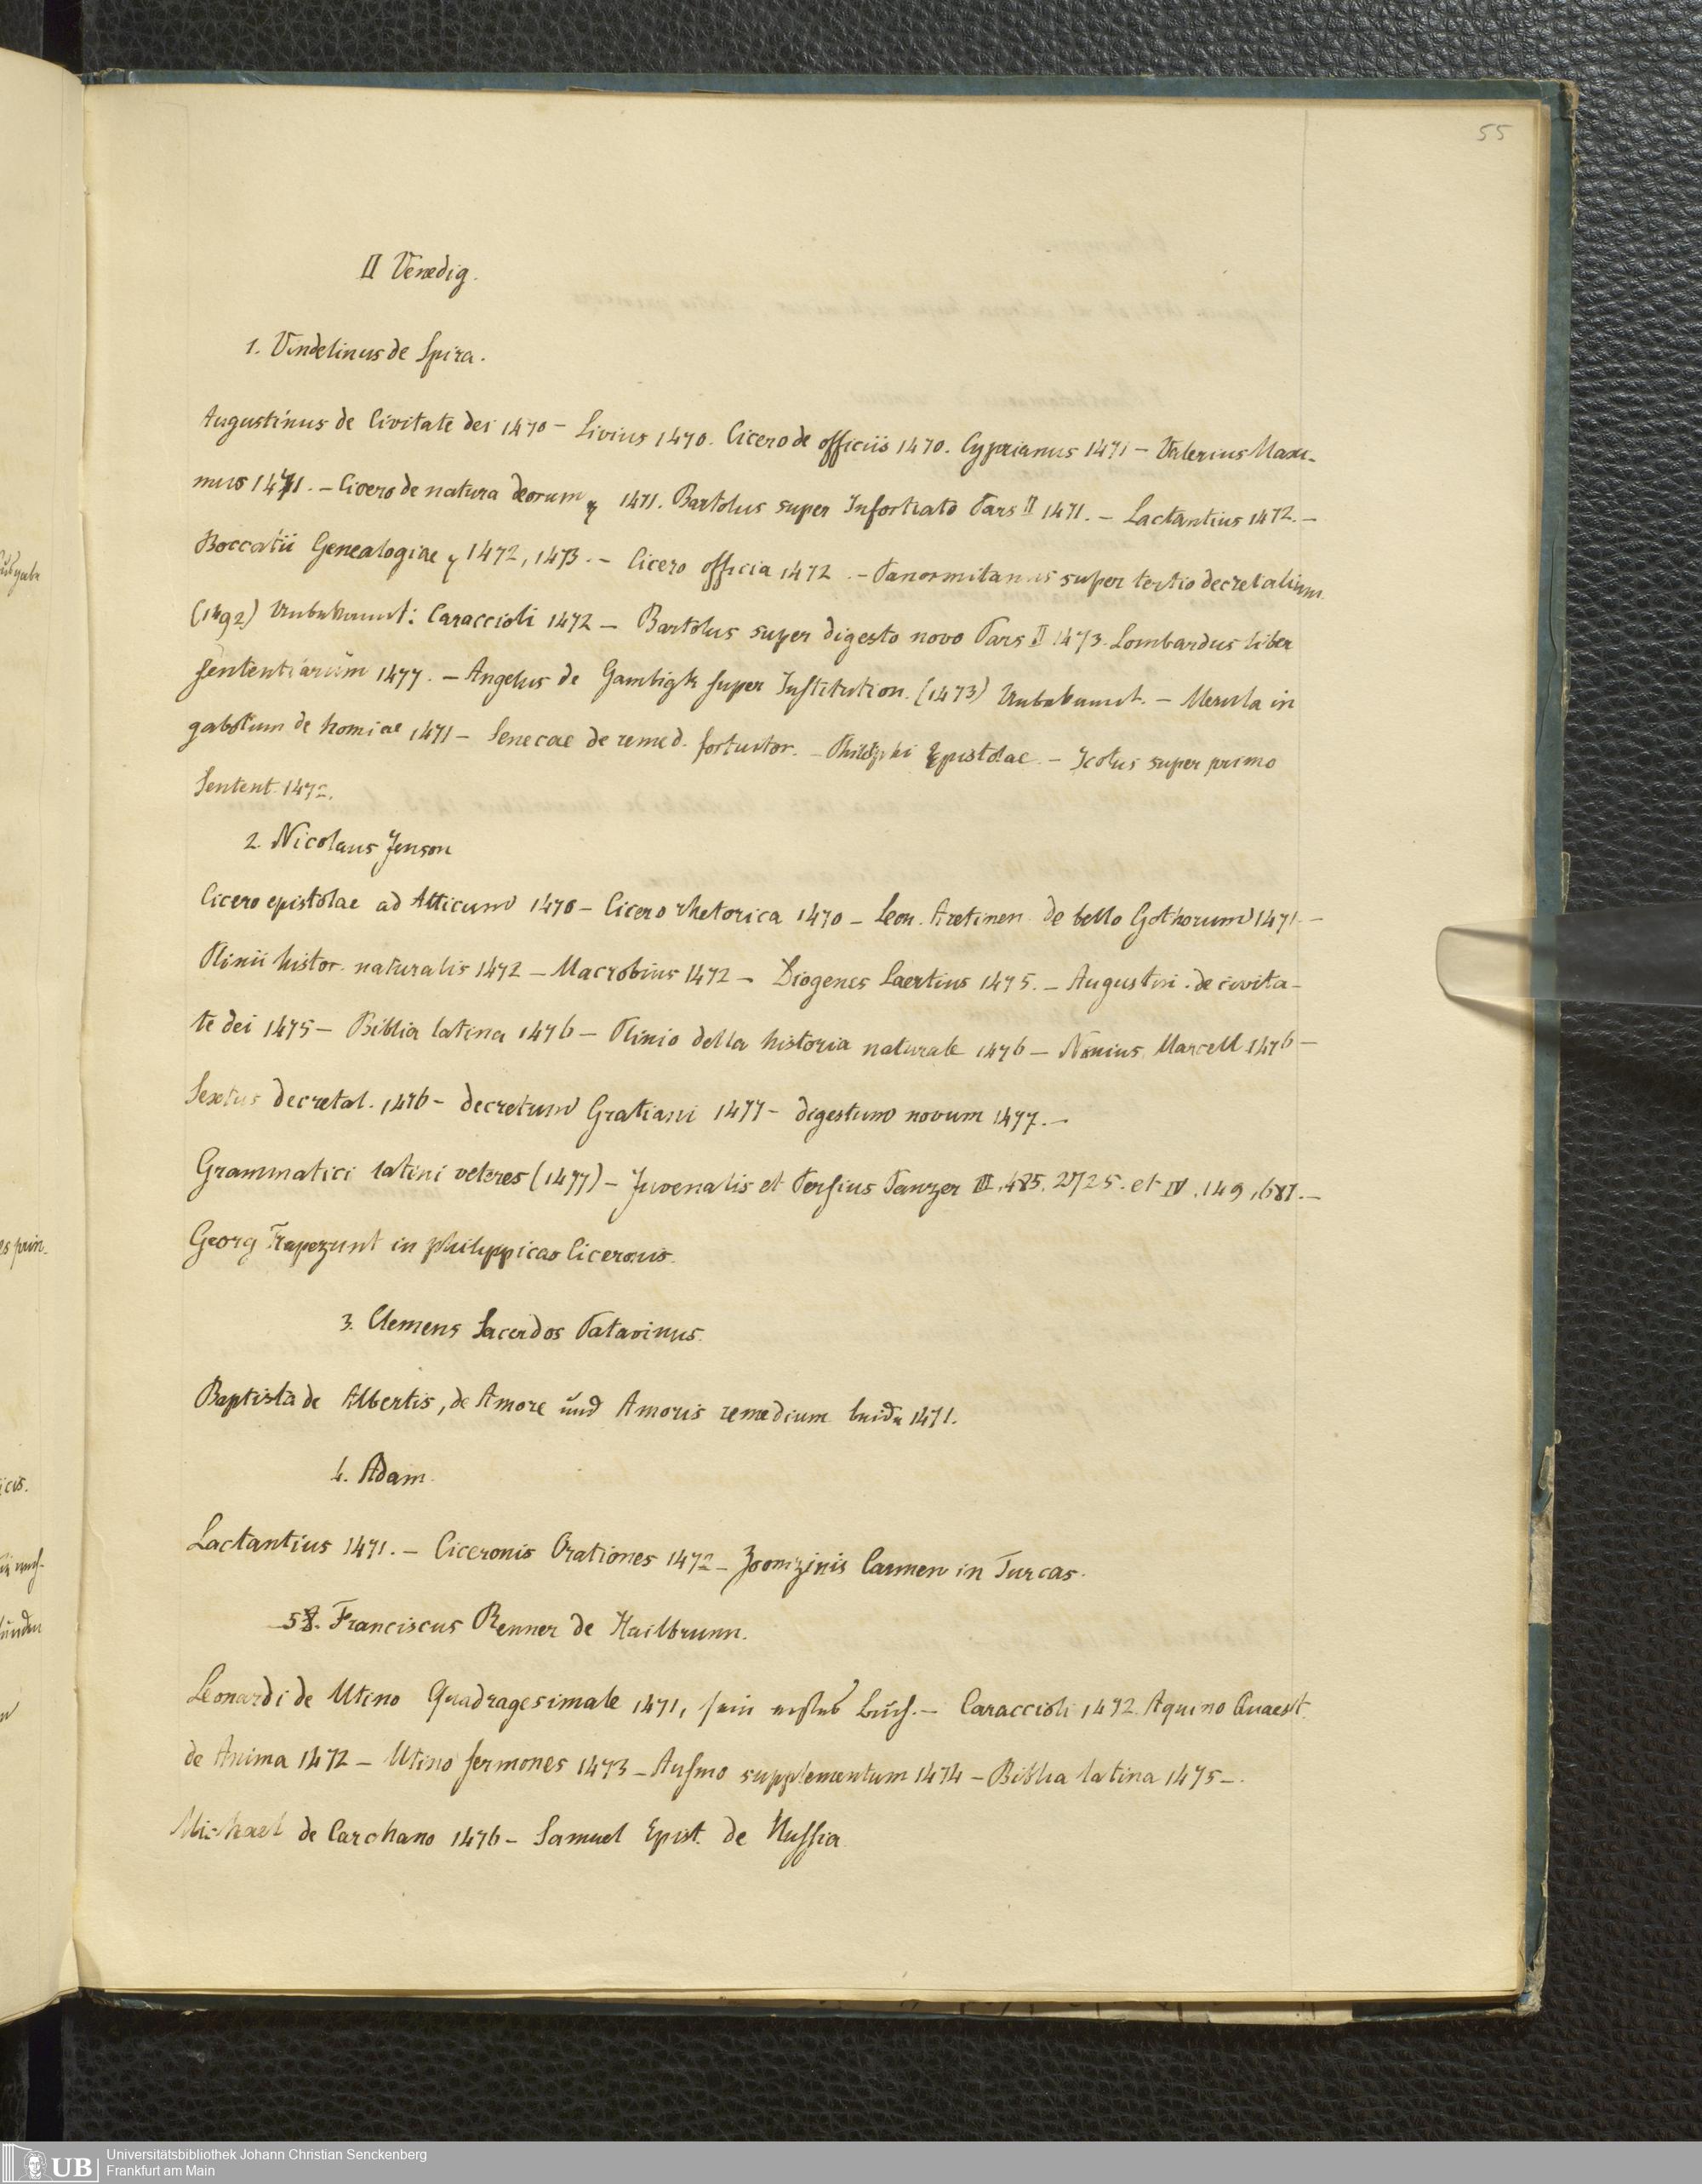 55
II Venedig.
1. Vindelinus de Spira.
Augustinus de Civitate dei 1470 – Livius 1470. Cicero de officiis 1470. Cyprianus 1471 – Valerius Maxi-
mus 1471. – Cicero de natura deorum 1471. Bartolus super Infortiato Pars II 1471. – Lactantius 1472. –
Boccatii Genealogiae 1472, 1473. – Cicero officia 1472. – Panormitanus super tertio decretalium
(1492) Unbekannt: Caraccioli 1472 – Bartolus super digesto novo Pars II 1473. Lombardus liber
sententiarum 1477. – Angelus de super Institution. (1473) Unbekannt. – Merula in
de 1471 – Senecae de remed. fortuitor. – Epistolae. – Scotus super primo
Sentent. 1472.
2. Nicolaus Jenson
Cicero epistolae ad Atticum 1470 – Cicero rhetorica 1470 – Leon. Aretinen. de bello Gothorum 1471. –
Plinii histor. naturalis 1472 – Macrobius 1472 – Diogenes Laertius 1475. – Augustin. de civita-
te dei 1475 – Biblia latina 1476 – Plinio della historia naturale 1476 – Nonius Marcell 1476 –
Sextus decretal. 1476 – decretum Gratiani 1477 – digestum novum 1477. –
Grammatici latini veteres (1477) – Juvenalis et Persius Panzer III. 485. 2725. et IV. 149, 687. –
Georg Trapezunt in philippicas Ciceronis.
3. Clemens Sacerdos Patavinus.
Baptista de Albertis, de Amore und Amoris remedium beide 1471.
4. Adam.
Lactantius 1471. – Ciceronis Orationes 1472 – Carmen in Turcas.
5. Franciscus Renner de Hailbrunn.
Leonardi de Utino Quadragesimale 1471, sein erstes Buch. – Caraccioli 1472. Aquino Quaest.
de Anima 1472 – Utino sermones 1473 – Ausmo supplementum 1474 – Biblia latina 1475 –.
Michael de Carchano 1476 – Samuel Epist. de
UB
Universitätsbibliothek Johann Christian Senckenberg
Frankfurt am Main